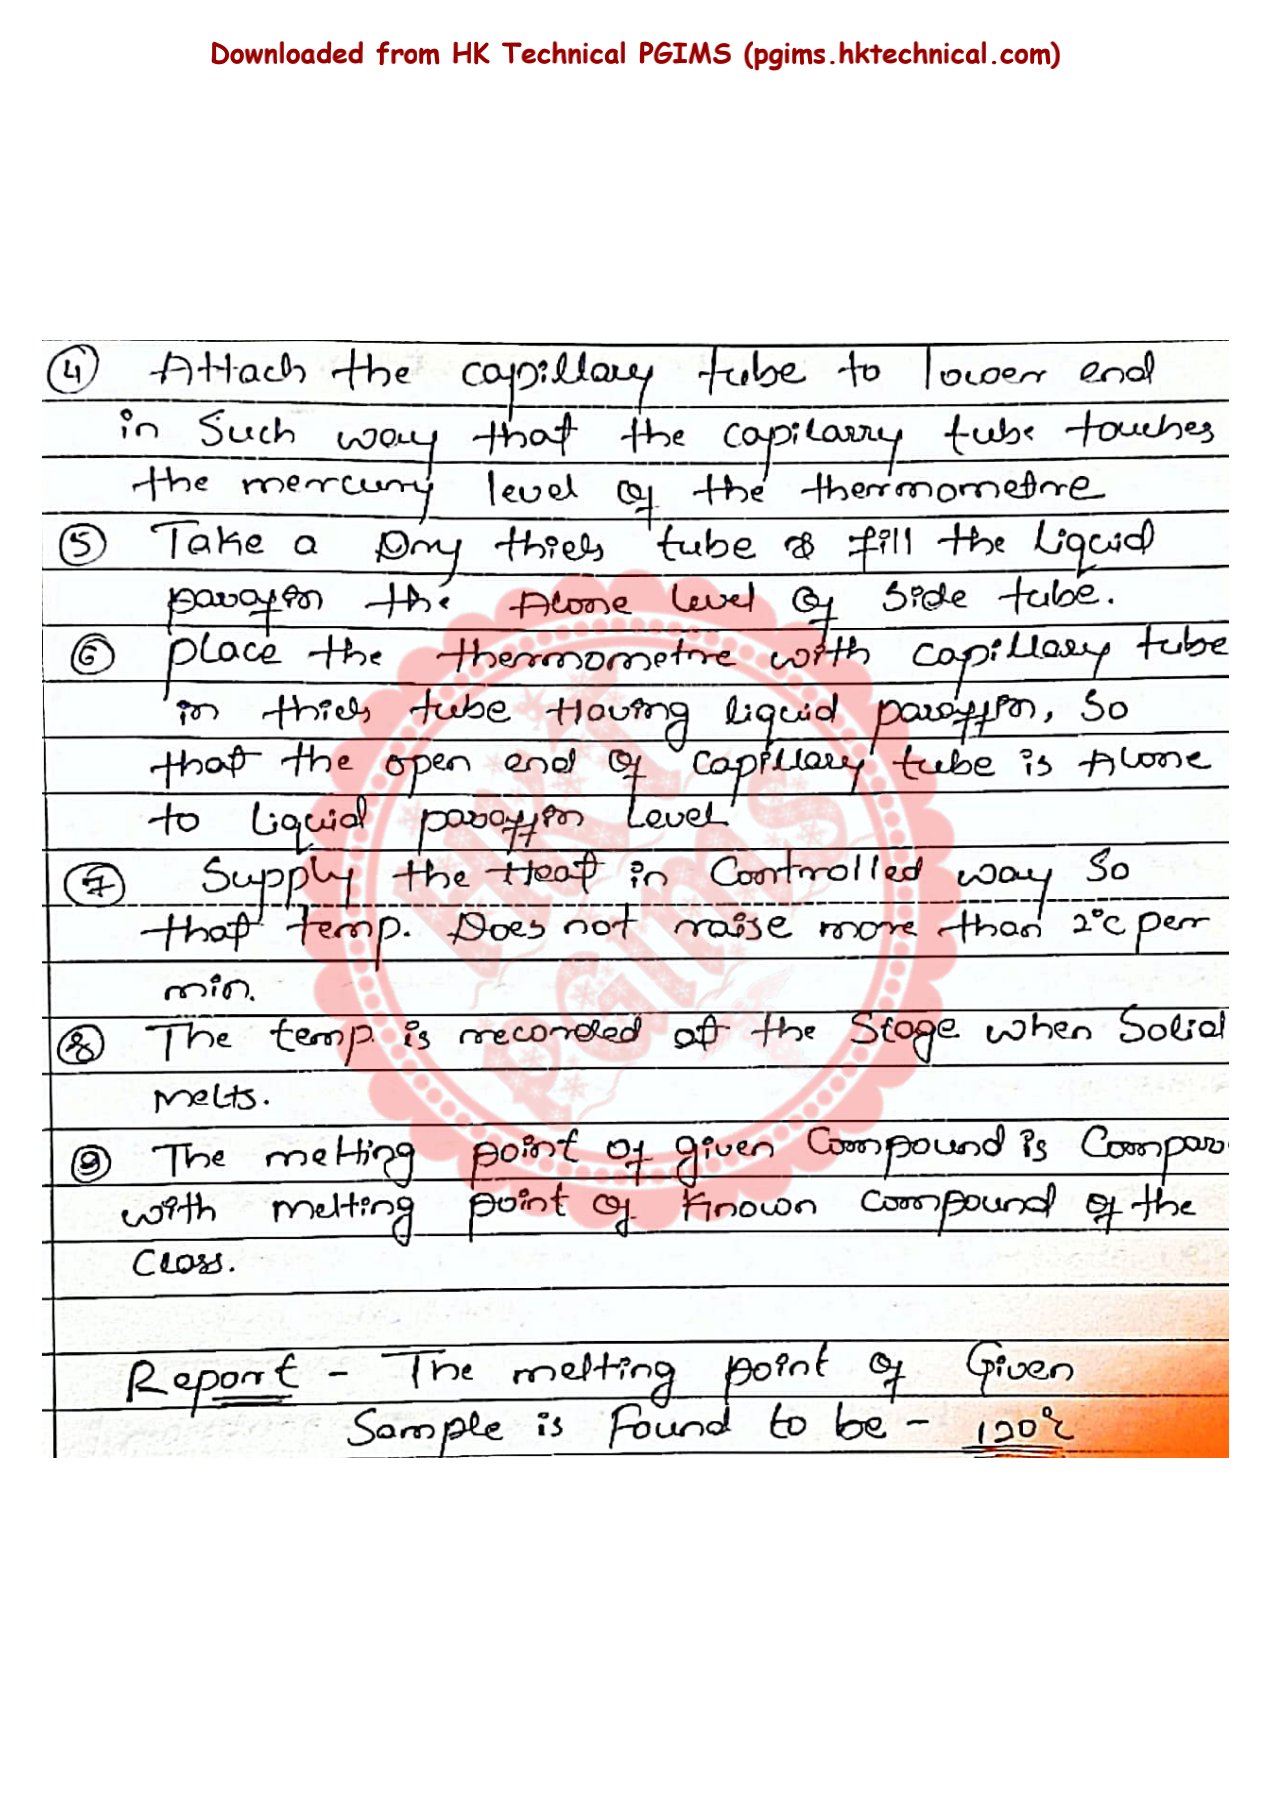 Downloaded from HK Technical PGIMS (pgims.hktechnical.com)
④ Attach the capillary tube to lower end
in Such way that the capilarry tube touches
the mercury level of the thermometre
⑤ Take a Dry thiels tube & fill the Liquid
paraffin the Alone level of side tube.
⑥ place the thermometre with capillary tube
in thiels tube Having liquid paraffin, so
that the open end of capillary tube is Alone
to Liquid paraffin Level
⑦ Supply the Heat in Controlled way so
that temp. Does not raise more than 2°c per
min.
⑧ The temp. is recorded at the Stage when Solid
melts.
⑨ The melting point of given compound is Compar
with melting point of Known compound of the
Class.
Report - The melting point of Given
Sample is Found to be - 120°c
HKT
PGIMS
PGIMS